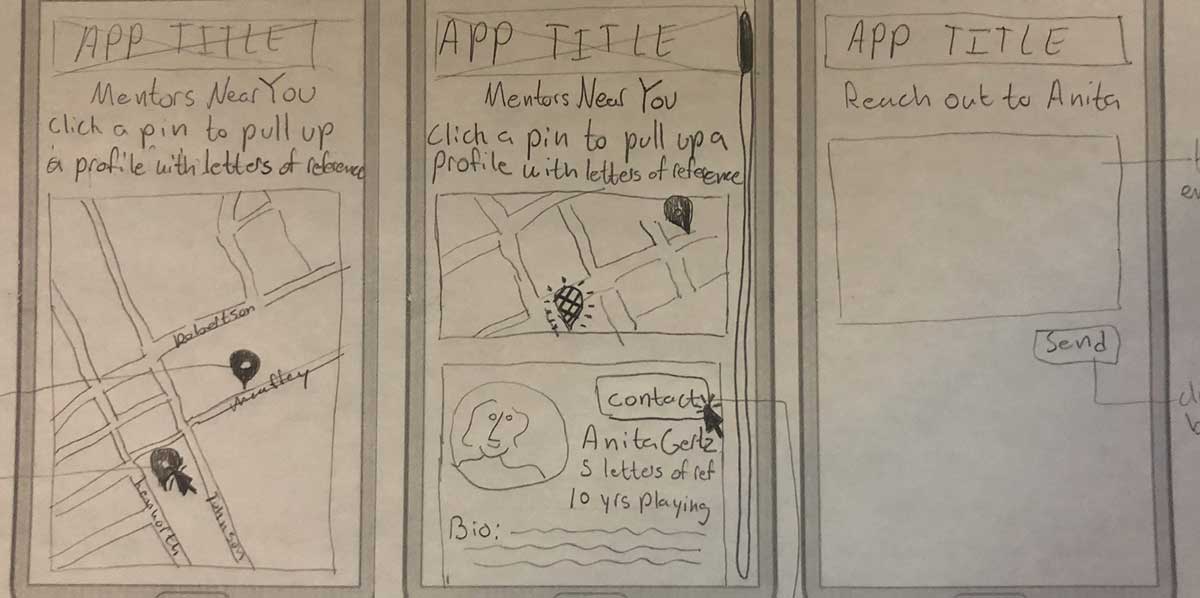 APP TITLE
Mentors Near You
Click a pin to pull up
a profile with letters of reference
Robertson
Kenworth
Johnson
APP TITLE
Mentors Near You
Click a pin to pull up a
profile with letters of reference
Contact
Anita Gertz
5 letters of ref
10 yrs playing
Bio:
APP TITLE
Reach out to Anita
Send